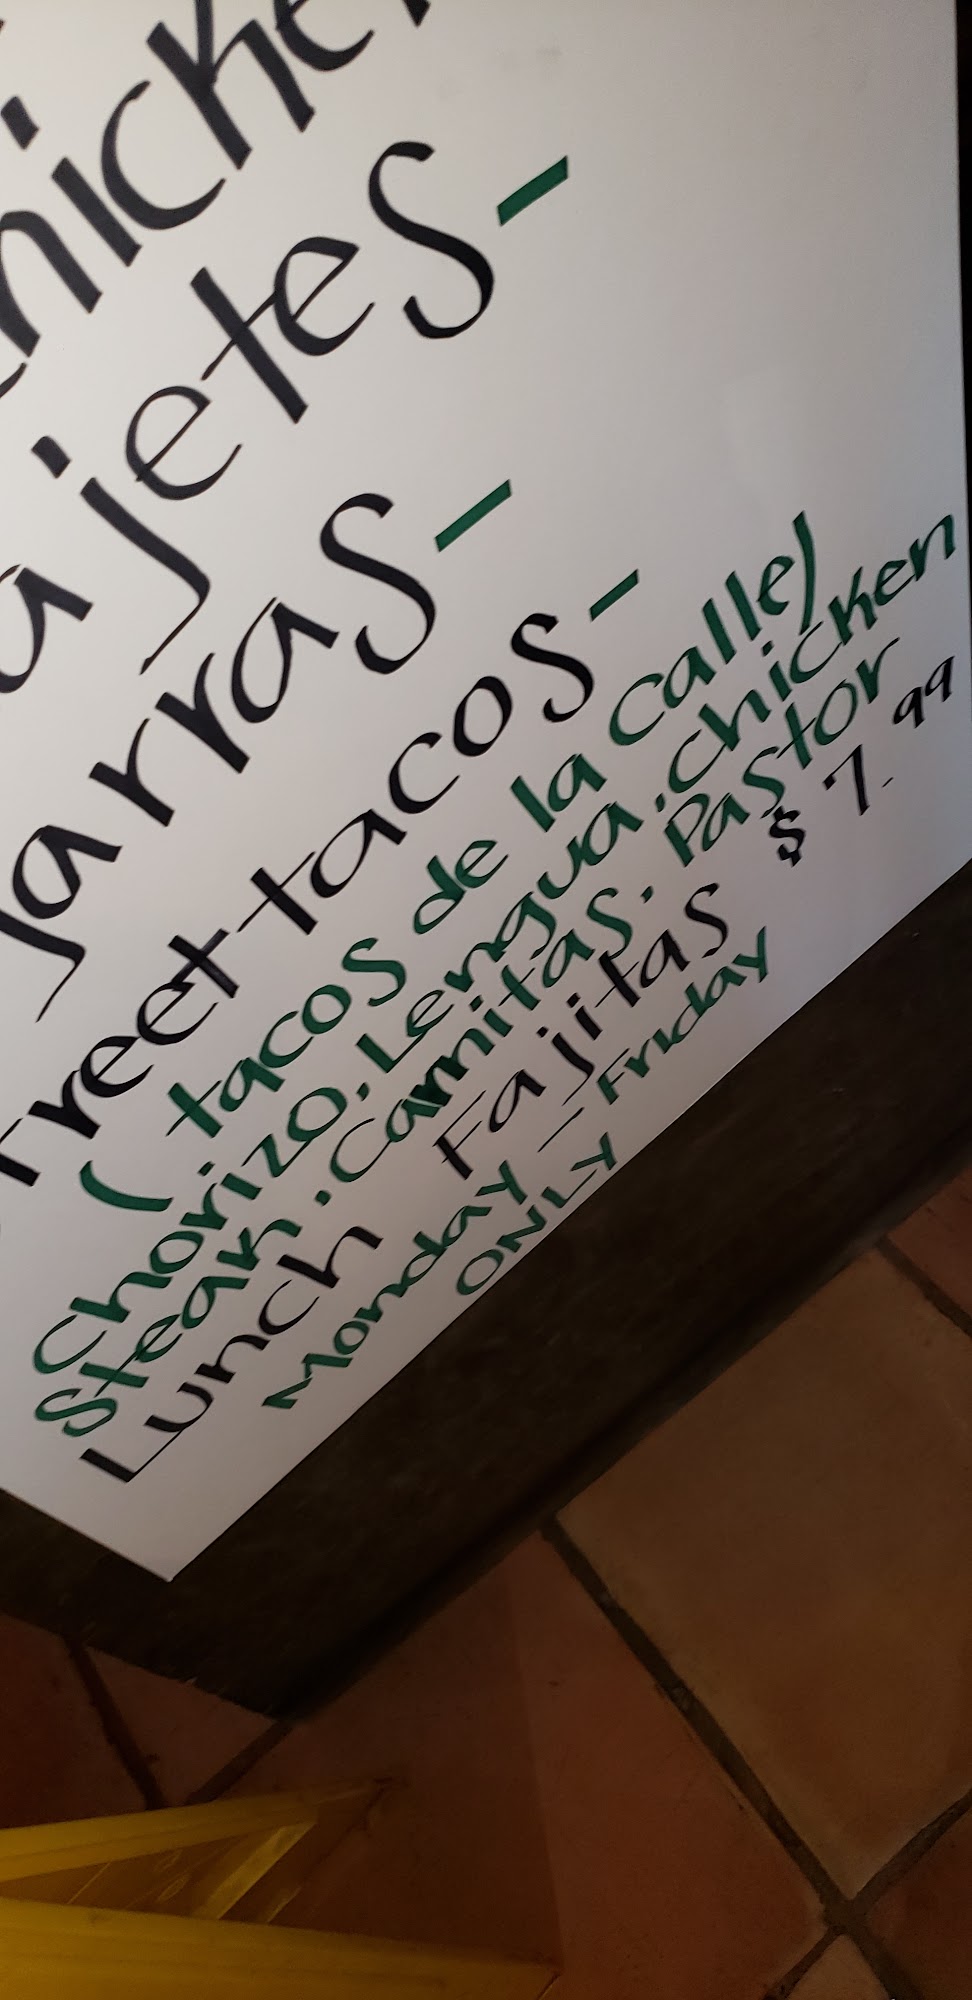 ajetes-
Jarras-
treet tacos-
( tacos de la calle)
Chorizo. Lengua. Chicken
Steak. Carnitas. Pastor
Lunch Fajitas $ 7.99
Monday - Friday
ONLY